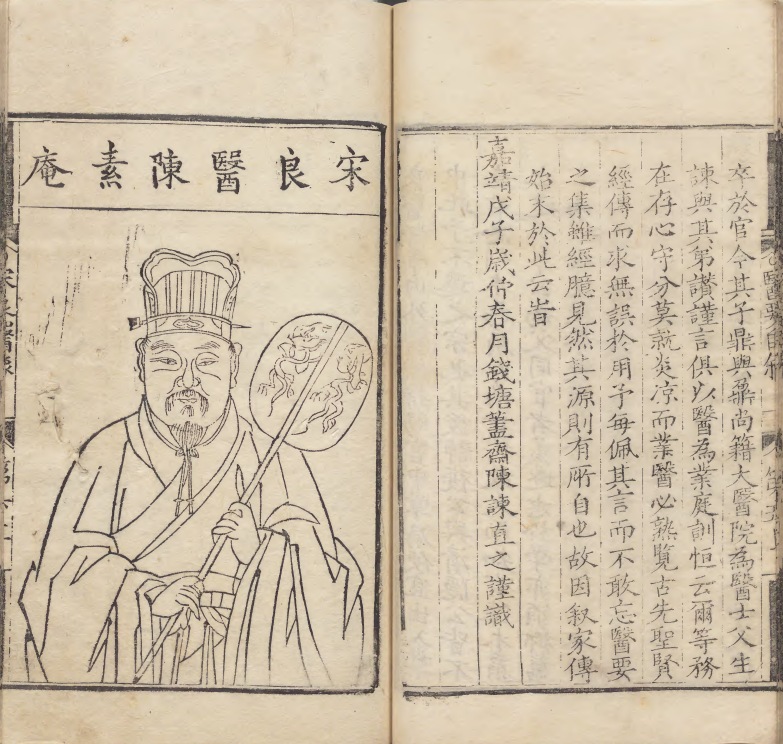 卒於官今其子鼎與鼐尚籍大醫院為醫士父生
諫與其弟讃謹言俱以醫為業庭訓恒云爾等務
在存心守分莫就炎凉而業醫必熟覽古先聖賢
經傳而求無誤於用予每佩其言而不敢忘醫要
之集雖經臆見然其源則有所自也故因叙家傳
始末於此云旹
嘉靖戊子歲仲春月錢塘藎齋陳諫直之謹識
宋良醫陳素庵